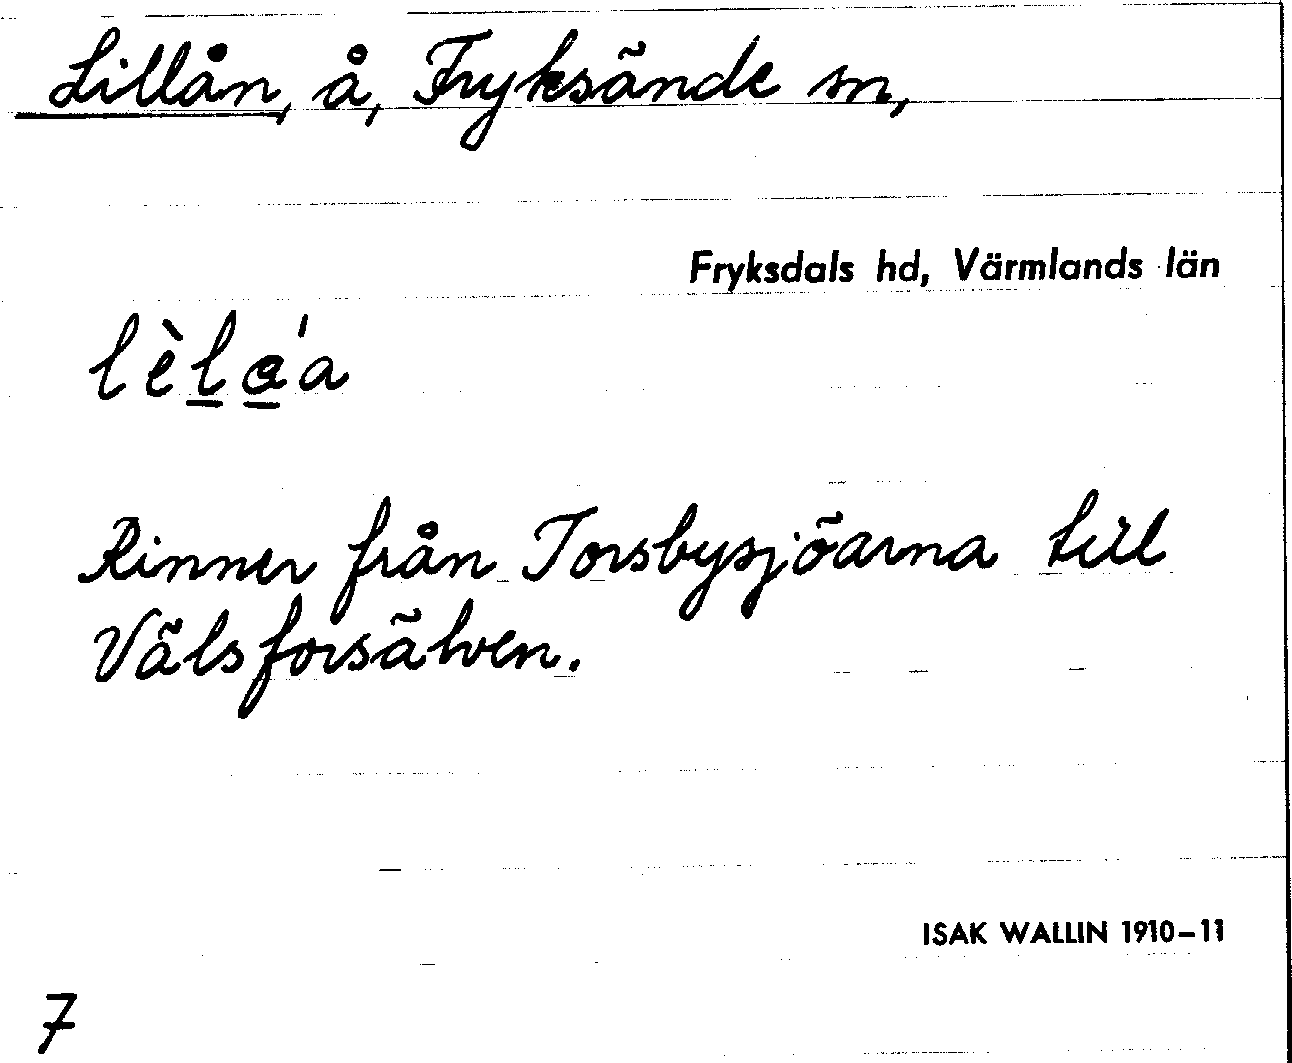 Lillån, å, Fryksände sn,
Fryksdals hd, Värmlands län
lèl̲a̲'a
Rinner från Torsbysjöarna till
Välsforsälven.
ISAK WALLIN 1910–11
7